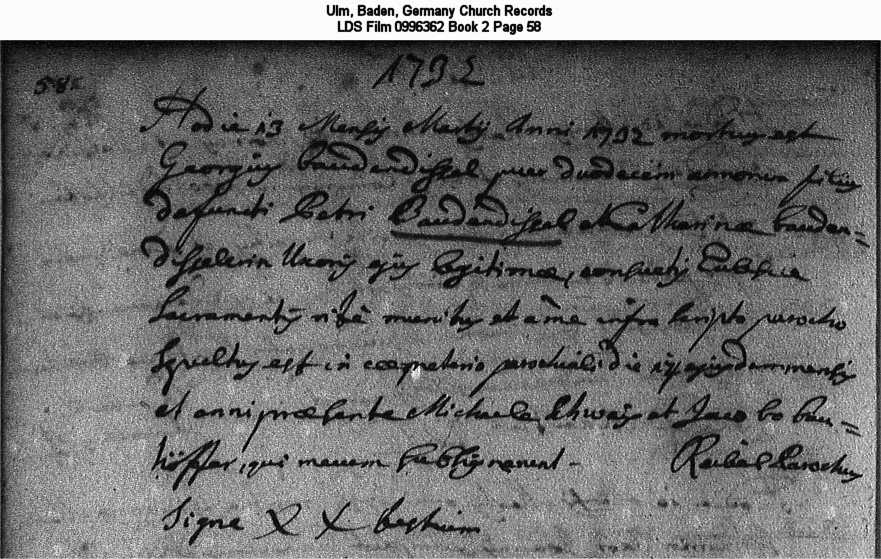 Ulm, Baden, Germany Church Records
LDS Film 0996362 Book 2 Page 58
58
1792
Hodie 13 Mensis Martij Anni 1792 mortuus est
Georgius baudendissel puer duodecim annorum filius
defuncti Petri Baudendissel et Catharinæ bauden=
disselerin Uxoris ejus legitimæ, consuetis Ecclesiæ
Sacramentis ritè munitus et a me infra scripto parocho
Sepultus est in cœmeterio parochiali die ejusdem mensis
et anni præsente Michaele et Jacobo bau=
höffer, qui mecum
Parochus
Signa X X testium